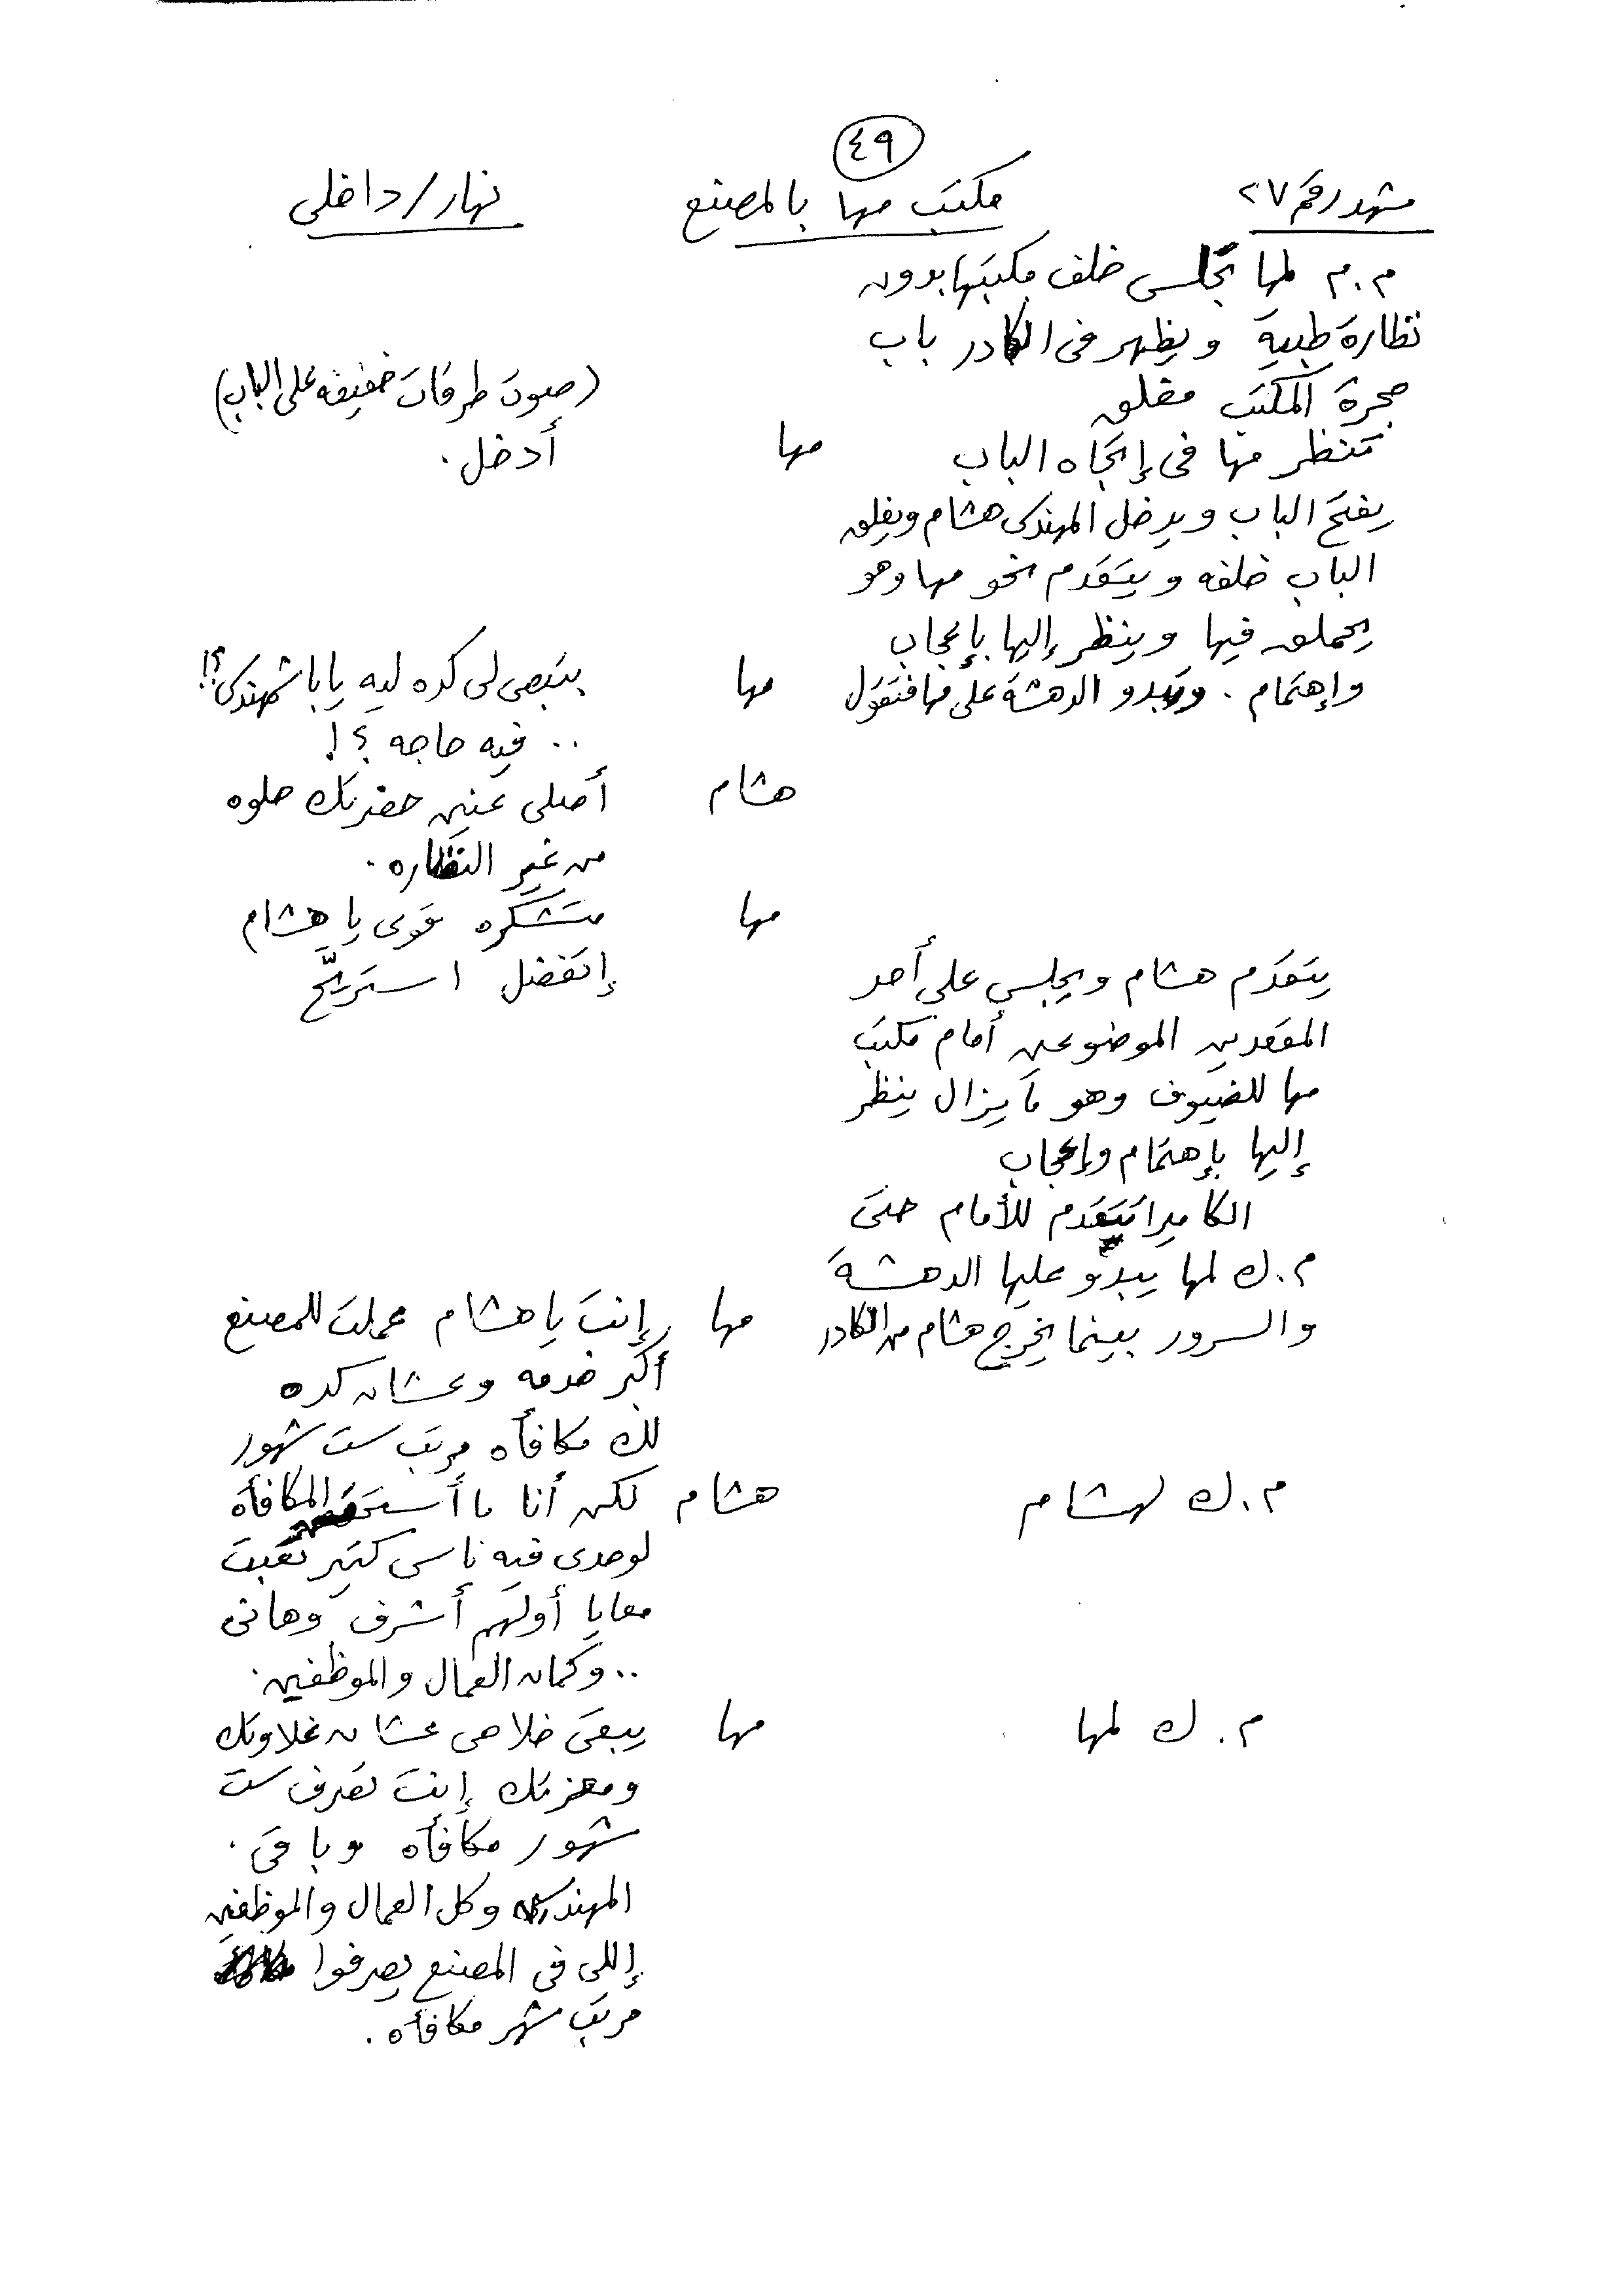 ٤٩
مشهد رقم ٢٧ مكتب مها بالمصنع نهار/داخلى
م.م لمها تجلس خلف مكتبها بدون
نظارة طبية ويظهر فى الكادر باب
حجرة المكتب مغلق
(صوت طرقات خفيفه على الباب)
تنظر مها فى إتجاه الباب مها أدخل.
يفتح الباب ويدخل المهندس هشام ويغلق
الباب خلفه ويتقدم نحو مها وهو
يحملق فيها وينظر إليها بإعجاب
وإهتمام. وتبدو الدهشة على مها فتقول مها بتبص لى كده ليه ياباشمهندس؟!
.. فيه حاجه؟!
هشام أصلى عنين حضرتك حلوه
من غير النظاره.
مها متشكره قوى يا هشام
إتفضل استريّح
يتقدم هشام ويجلس على أحد
المقعدين الموضوعين أمام مكتب
مها للضيوف وهو مايزال ينظر
إليها بإهتمام وإعجاب
الكاميرا تتقدم للأمام حتى
م.ك لمها يبدو عليها الدهشة
والسرور بينما يخرج هشام من الكادر مها إنت يا هشام عملت للمصنع
أكبر خدمه وعشان كده
لك مكافأه مرتب ست شهور
م.ك لهشام هشام لكن أنا ما أستحقش المكافأه
لوحدى فيه ناس كتير تعبت
معايا أولهم أشرف وهانى
.. وكمان العمال والموظفين.
م.ك لمها مها يبقى خلاص عشان غلاوتك
ومعزتك إنت تصرف ست
شهور مكافأه وباقى.
المهندسين وكل العمال والموظفين
إللى فى المصنع يصرفوا
مرتب شهر مكافأه.